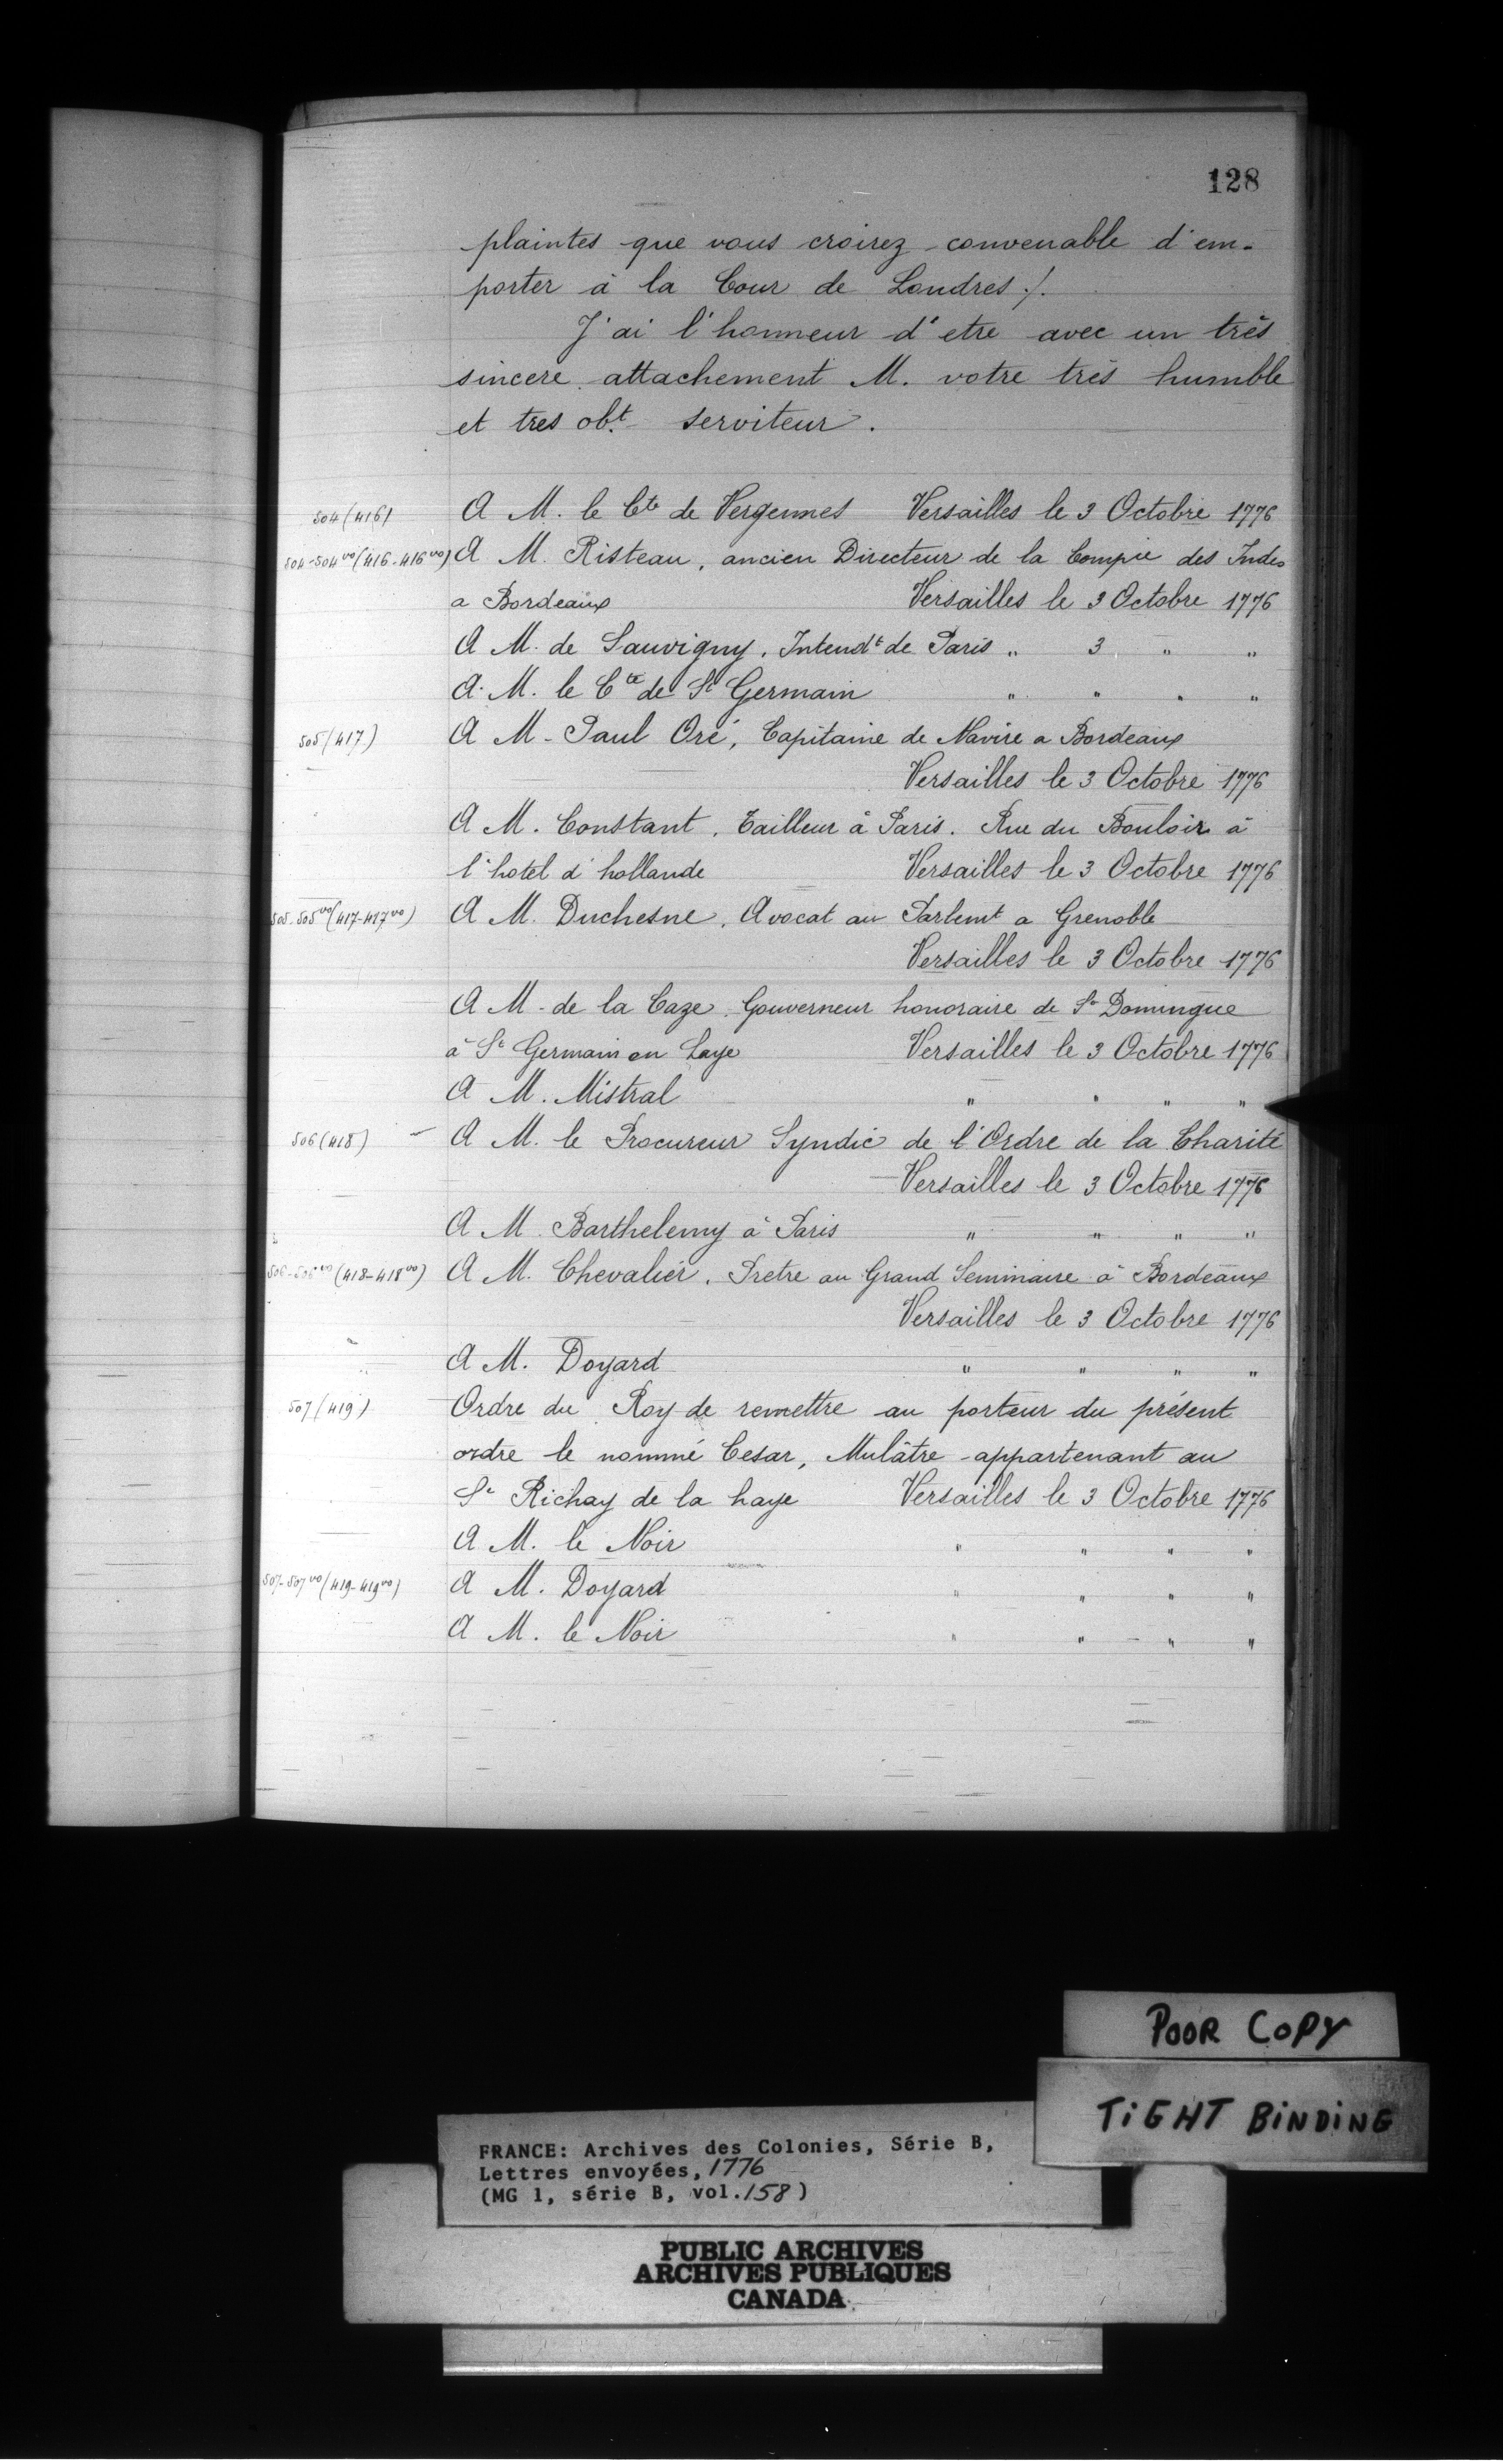 128
plaintes que vous croirez convenable d'em-
porter à la Cour de Londres ./.
J'ai l'honneur d'etre avec un très
sincere attachement M. votre très humble
et tres obt. serviteur.
504 (416) A M. le Cte de Vergennes Versailles le 3 Octobre 1776
504-504vo (416-416vo) A M. Risteau, ancien Directeur de la Compie des Indes
a Bordeaux Versailles le 3 Octobre 1776
A M. de Sauvigny, Intendt de Paris " 3 " "
A M. le Cte de St Germain " " " "
505 (417) A M. Paul Oré, Capitaine de Navire a Bordeaux
Versailles le 3 Octobre 1776
A M. Constant, Tailleur à Paris. Rue du Bouloir à
l'hotel d'hollande Versailles le 3 Octobre 1776
505-505vo (417-417vo) A M. Duchesne, Avocat au Parlemt a Grenoble
Versailles le 3 Octobre 1776
A M. de la Caze, Gouverneur honoraire de St Domingue
à St Germain en Laye Versailles le 3 Octobre 1776
A M. Mistral " " " "
506 (418) A M. le Procureur Syndic de l'Ordre de la Charité
Versailles le 3 Octobre 1776
A M. Barthelemy à Paris " " " "
506-506vo (418-418vo) A M. Chevalier, Pretre au Grand Seminaire à Bordeaux
Versailles le 3 Octobre 1776
A M. Doyard " " " "
507 (419) Ordre du Roy de remettre au porteur du présent
ordre le nommé Cesar, Mulâtre appartenant au
Sr Richay de la haye Versailles le 3 Octobre 1776
A M. le Noir " " " "
507-507vo (419-419vo) A M. Doyard " " " "
A M. le Noir " " " "
POOR COPY
TIGHT BINDING
FRANCE: Archives des Colonies, Série B,
Lettres envoyées, 1776
(MG 1, série B, vol. 158)
PUBLIC ARCHIVES
ARCHIVES PUBLIQUES
CANADA